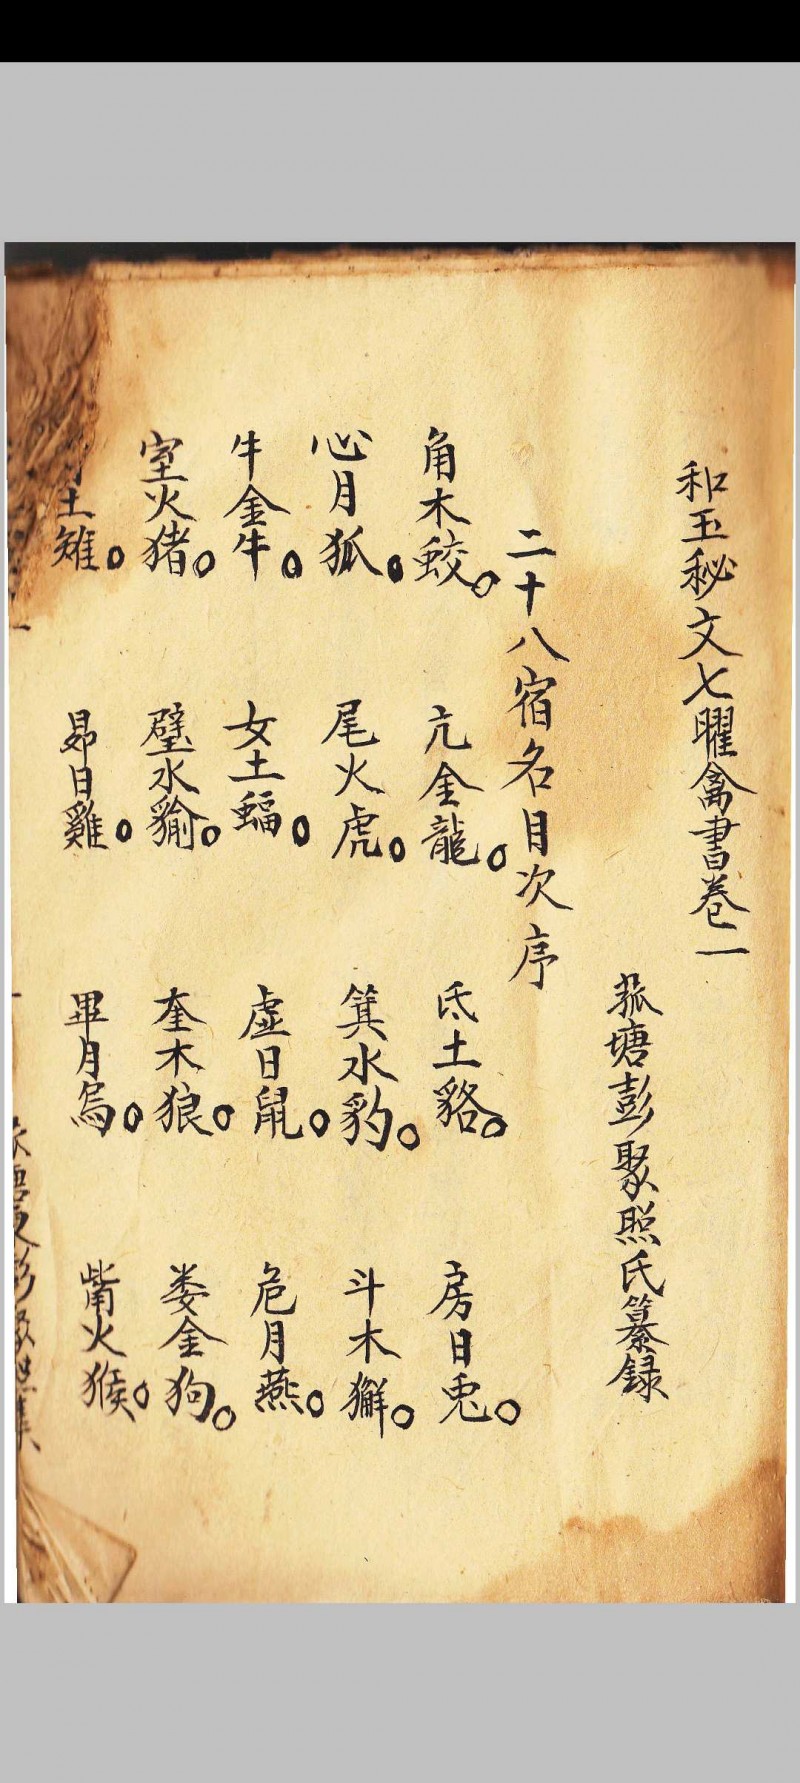 和玉秘文七曜禽書卷二
菰塘彭聚熙氏纂録
二十八宿名目次序
角木蛟。亢金龍。氐土貉。房日兎。
心月狐。尾火虎。箕水豹。斗木獬。
牛金牛。女土蝠。虛日鼠。危月燕。
室火猪。壁水貐。奎木狼。娄金狗。
土雉。昴日雞。畢月烏。觜火猴。